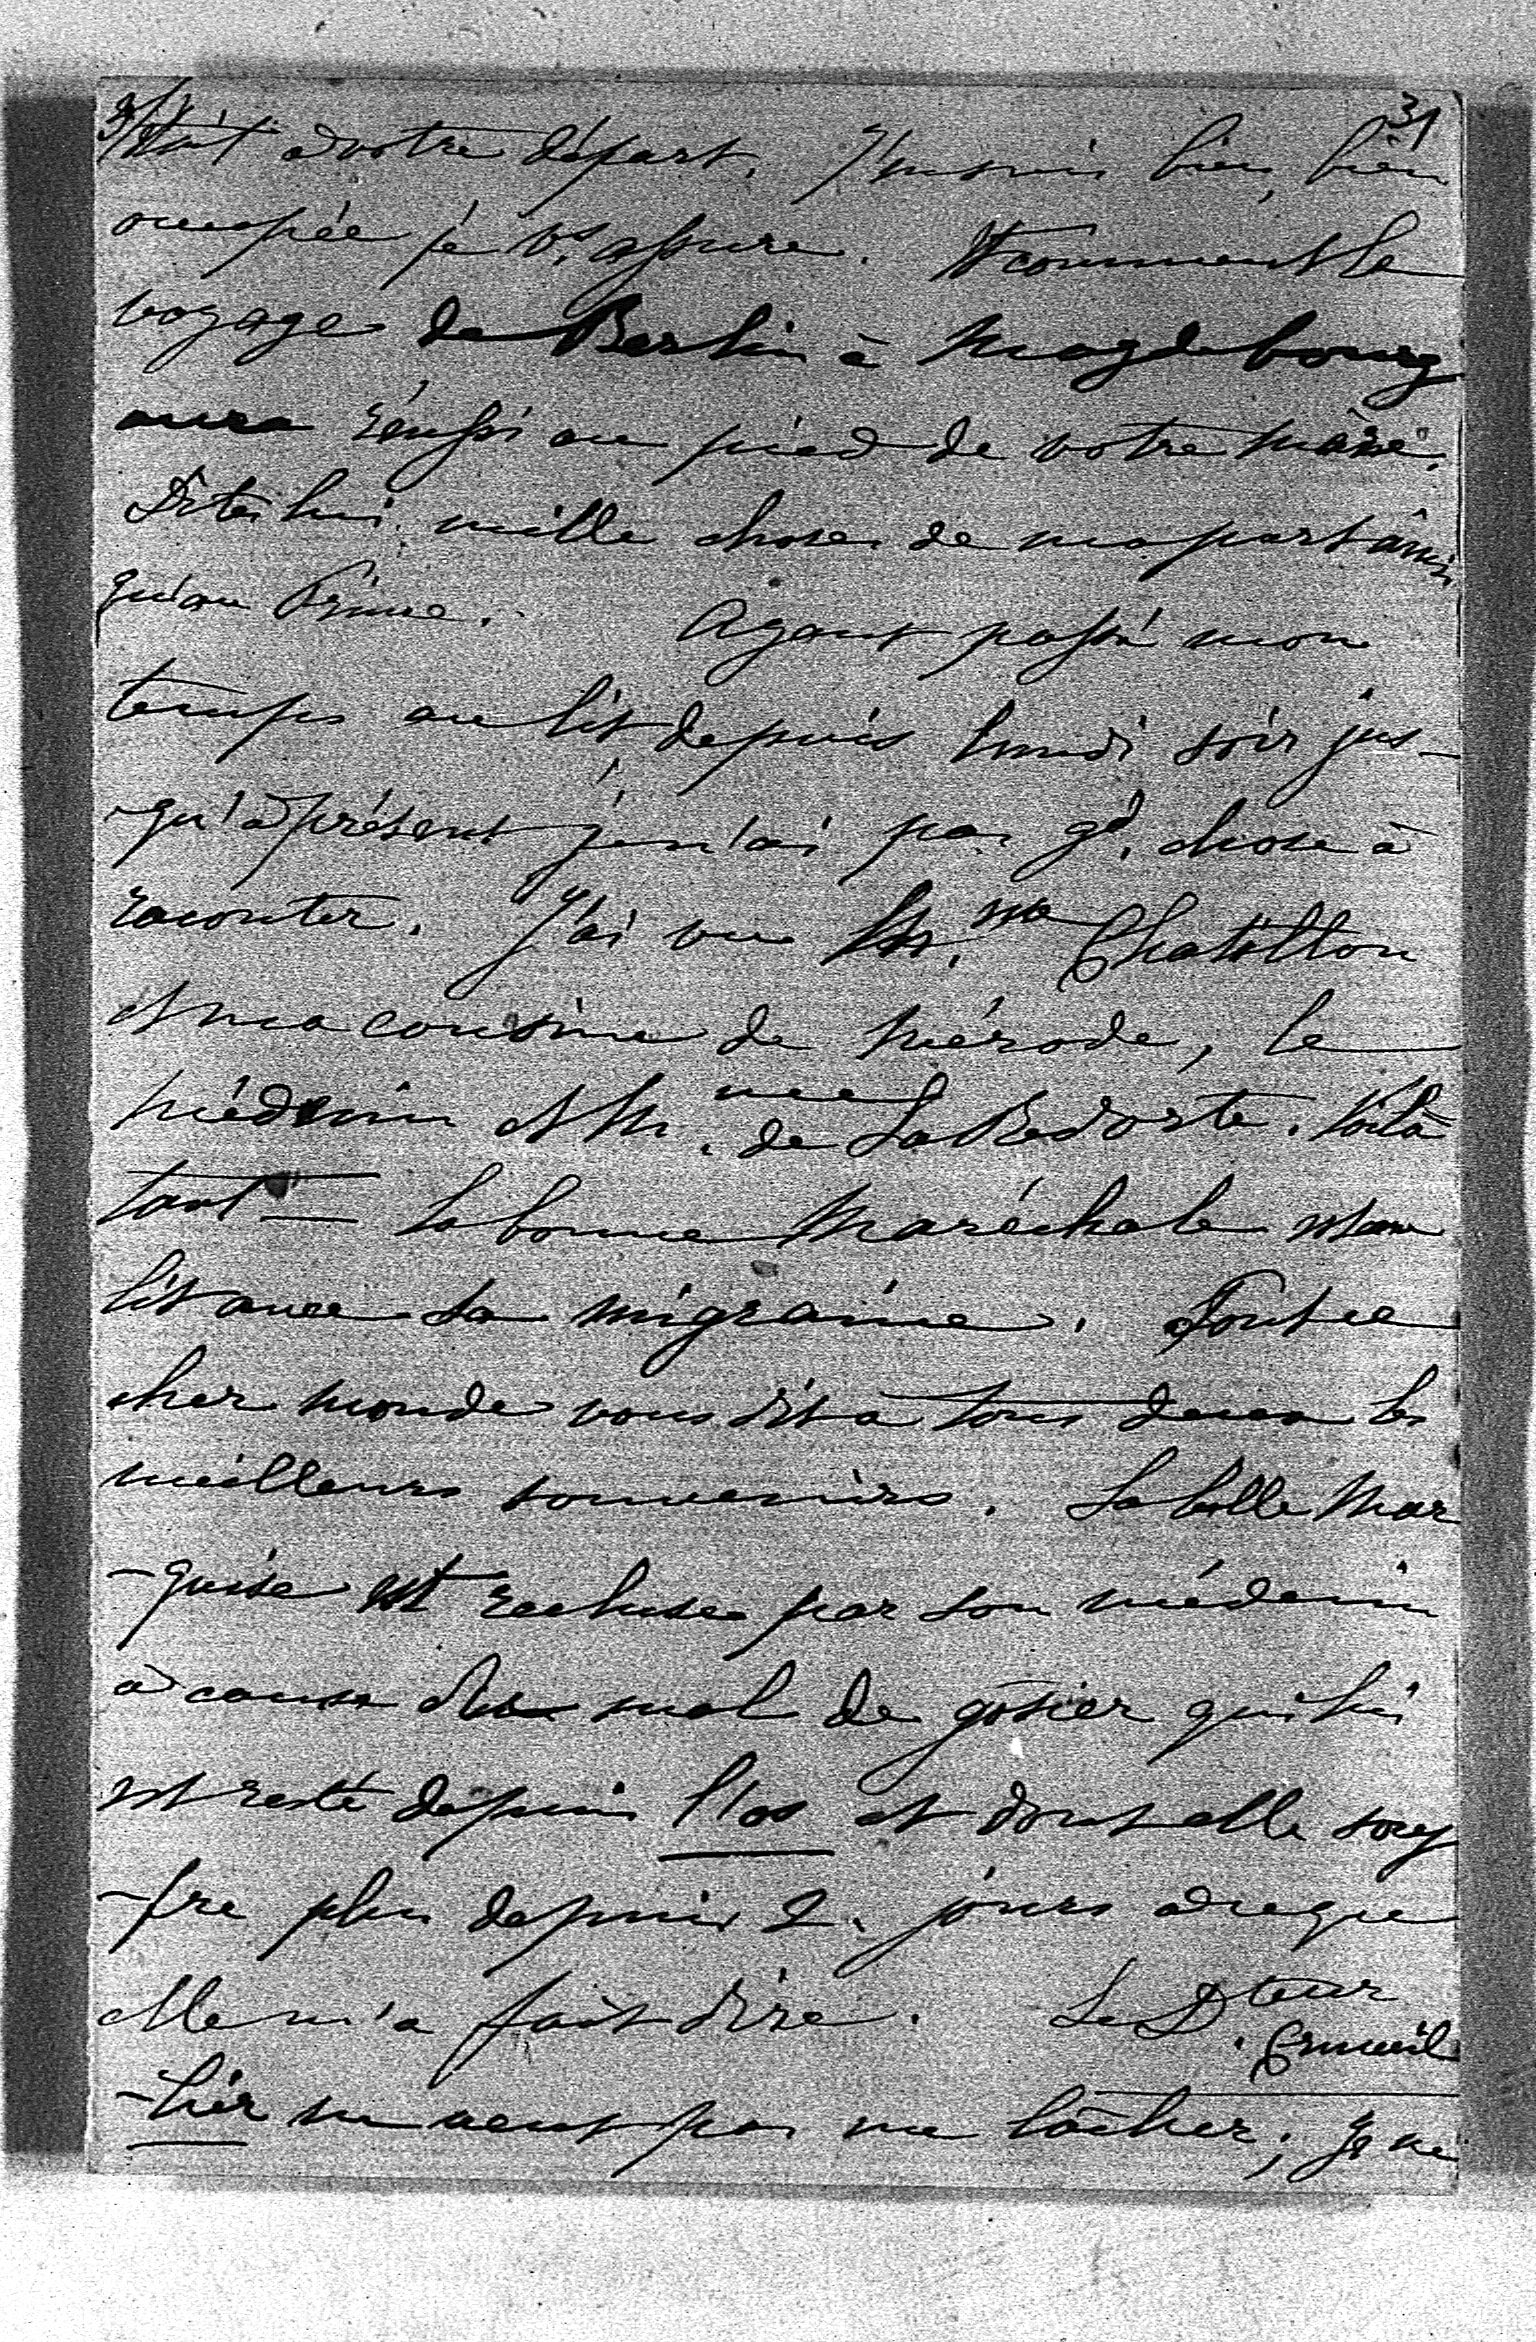 3/ 31
était à votre départ. J'en suis bien, bien
occupée je vs. assure. Et comment le
voyage de Berlin à Magdebourg
aura réussi au pied de votre mère.
Dites lui mille choses de ma part ainsi
qu'au Prince. Ayant passé mon
temps au lit depuis lundi soir jus-
-qu'à présent je n'ai pas gd. chose à
raconter. J'ai vu M.me Chatillon
et ma cousine de Mérode, le
médecin et M.me de La Redorte. Voilà
tout — La bonne Maréchale est au
lit avec sa migraine. Tout ce
cher monde vous dit à tous deux les
meilleurs souvenirs. La belle Mar
-quise est recluse par son médecin
à cause du mal de gosier qui lui
est resté depuis l'os et dont elle souf
-fre plus depuis 2. jours à ce que
elle m'a fait dire. Le D.teur Cruveil
-hier ne veut pas me lâcher; je ne